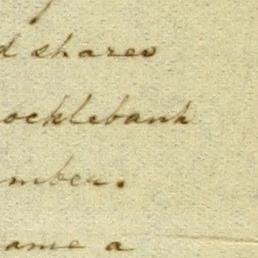 d shares
ocklebank
mber.
ame a